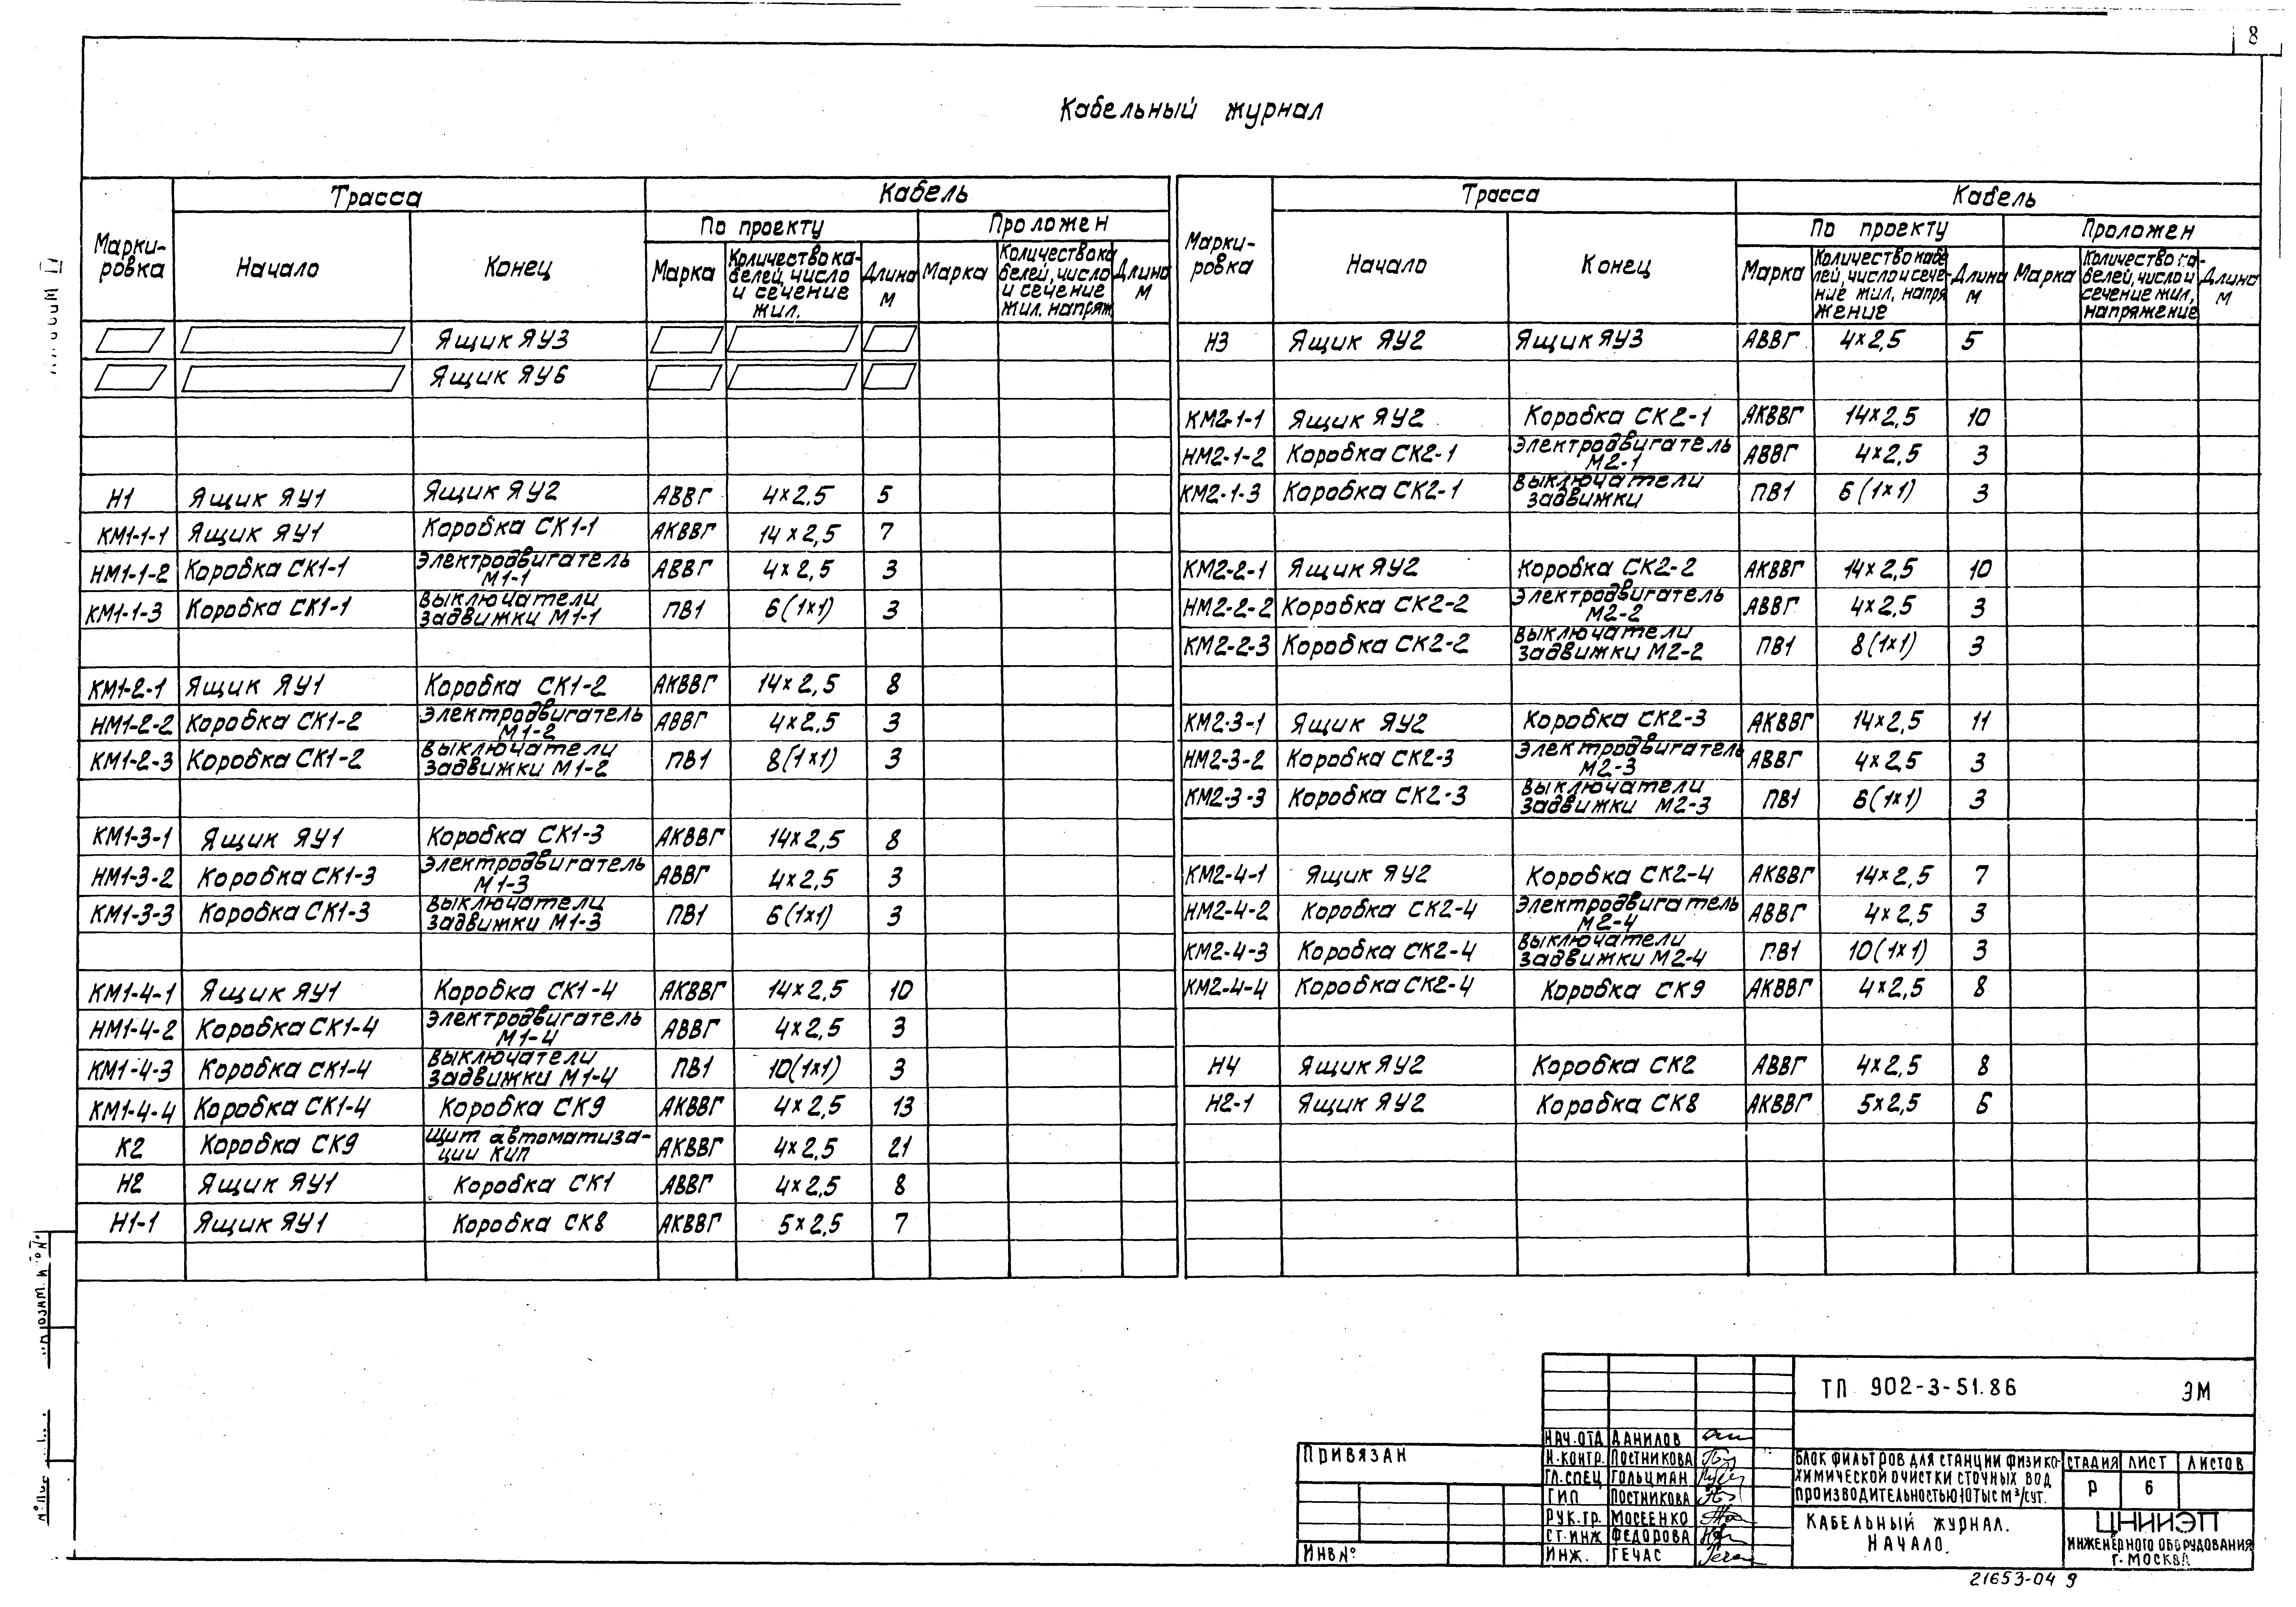 8
Кабельный журнал
Маркировка Трасса Кабель
Начало Конец По проекту Проложен
Марка Количество кабелей, число и сечение жил. Длина М Марка Количество кабелей, число и сечение жил. напряж. Длина М
Ящик ЯУ3
Ящик ЯУ6
Н1 Ящик ЯУ1 Ящик ЯУ2 АВВГ 4×2,5 5
КМ1-1-1 Ящик ЯУ1 Коробка СК1-1 АКВВГ 14×2,5 7
НМ1-1-2 Коробка СК1-1 Электродвигатель М1-1 АВВГ 4×2,5 3
КМ1-1-3 Коробка СК1-1 Выключатели задвижки М1-1 ПВ1 6(1×1) 3
КМ1-2-1 Ящик ЯУ1 Коробка СК1-2 АКВВГ 14×2,5 8
НМ1-2-2 Коробка СК1-2 Электродвигатель М1-2 АВВГ 4×2,5 3
КМ1-2-3 Коробка СК1-2 Выключатели задвижки М1-2 ПВ1 8(1×1) 3
КМ1-3-1 Ящик ЯУ1 Коробка СК1-3 АКВВГ 14×2,5 8
НМ1-3-2 Коробка СК1-3 Электродвигатель М1-3 АВВГ 4×2,5 3
КМ1-3-3 Коробка СК1-3 Выключатели задвижки М1-3 ПВ1 6(1×1) 3
КМ1-4-1 Ящик ЯУ1 Коробка СК1-4 АКВВГ 14×2,5 10
НМ1-4-2 Коробка СК1-4 Электродвигатель М1-4 АВВГ 4×2,5 3
КМ1-4-3 Коробка СК1-4 Выключатели задвижки М1-4 ПВ1 10(1×1) 3
КМ1-4-4 Коробка СК1-4 Коробка СК9 АКВВГ 4×2,5 13
К2 Коробка СК9 Щит автоматизации КИП АКВВГ 4×2,5 21
Н2 Ящик ЯУ1 Коробка СК1 АВВГ 4×2,5 8
Н1-1 Ящик ЯУ1 Коробка СК8 АКВВГ 5×2,5 7
Маркировка Трасса Кабель
Начало Конец По проекту Проложен
Марка Количество кабелей, число и сечение жил, напряжение Длина М Марка Количество кабелей, число и сечение жил, напряжение Длина М
Н3 Ящик ЯУ2 Ящик ЯУ3 АВВГ 4×2,5 5
КМ2-1-1 Ящик ЯУ2 Коробка СК2-1 АКВВГ 14×2,5 10
НМ2-1-2 Коробка СК2-1 Электродвигатель М2-1 АВВГ 4×2,5 3
КМ2-1-3 Коробка СК2-1 Выключатели задвижки ПВ1 6(1×1) 3
КМ2-2-1 Ящик ЯУ2 Коробка СК2-2 АКВВГ 14×2,5 10
НМ2-2-2 Коробка СК2-2 Электродвигатель М2-2 АВВГ 4×2,5 3
КМ2-2-3 Коробка СК2-2 Выключатели задвижки М2-2 ПВ1 8(1×1) 3
КМ2-3-1 Ящик ЯУ2 Коробка СК2-3 АКВВГ 14×2,5 11
НМ2-3-2 Коробка СК2-3 Электродвигатель М2-3 АВВГ 4×2,5 3
КМ2-3-3 Коробка СК2-3 Выключатели задвижки М2-3 ПВ1 6(1×1) 3
КМ2-4-1 Ящик ЯУ2 Коробка СК2-4 АКВВГ 14×2,5 7
НМ2-4-2 Коробка СК2-4 Электродвигатель М2-4 АВВГ 4×2,5 3
КМ2-4-3 Коробка СК2-4 Выключатели задвижки М2-4 ПВ1 10(1×1) 3
КМ2-4-4 Коробка СК2-4 Коробка СК9 АКВВГ 4×2,5 8
Н4 Ящик ЯУ2 Коробка СК2 АВВГ 4×2,5 8
Н2-1 Ящик ЯУ2 Коробка СК8 АКВВГ 5×2,5 6
Привязан
Инв №
ТП 902-3-51.86 ЭМ
Нач.отд Данилов
Н.контр. Постникова
Гл.спец Гольцман
ГИП Постникова
Рук.гр. Мосеенко
Ст.инж Федорова
Инж. Гечас
Блок фильтров для станции физико-
химической очистки сточных вод
производительностью 10 тыс м³/сут.
Стадия Лист Листов
Р 6
Кабельный журнал.
Начало.
ЦНИИЭП
инженерного оборудования
г. Москва
21653-04 9